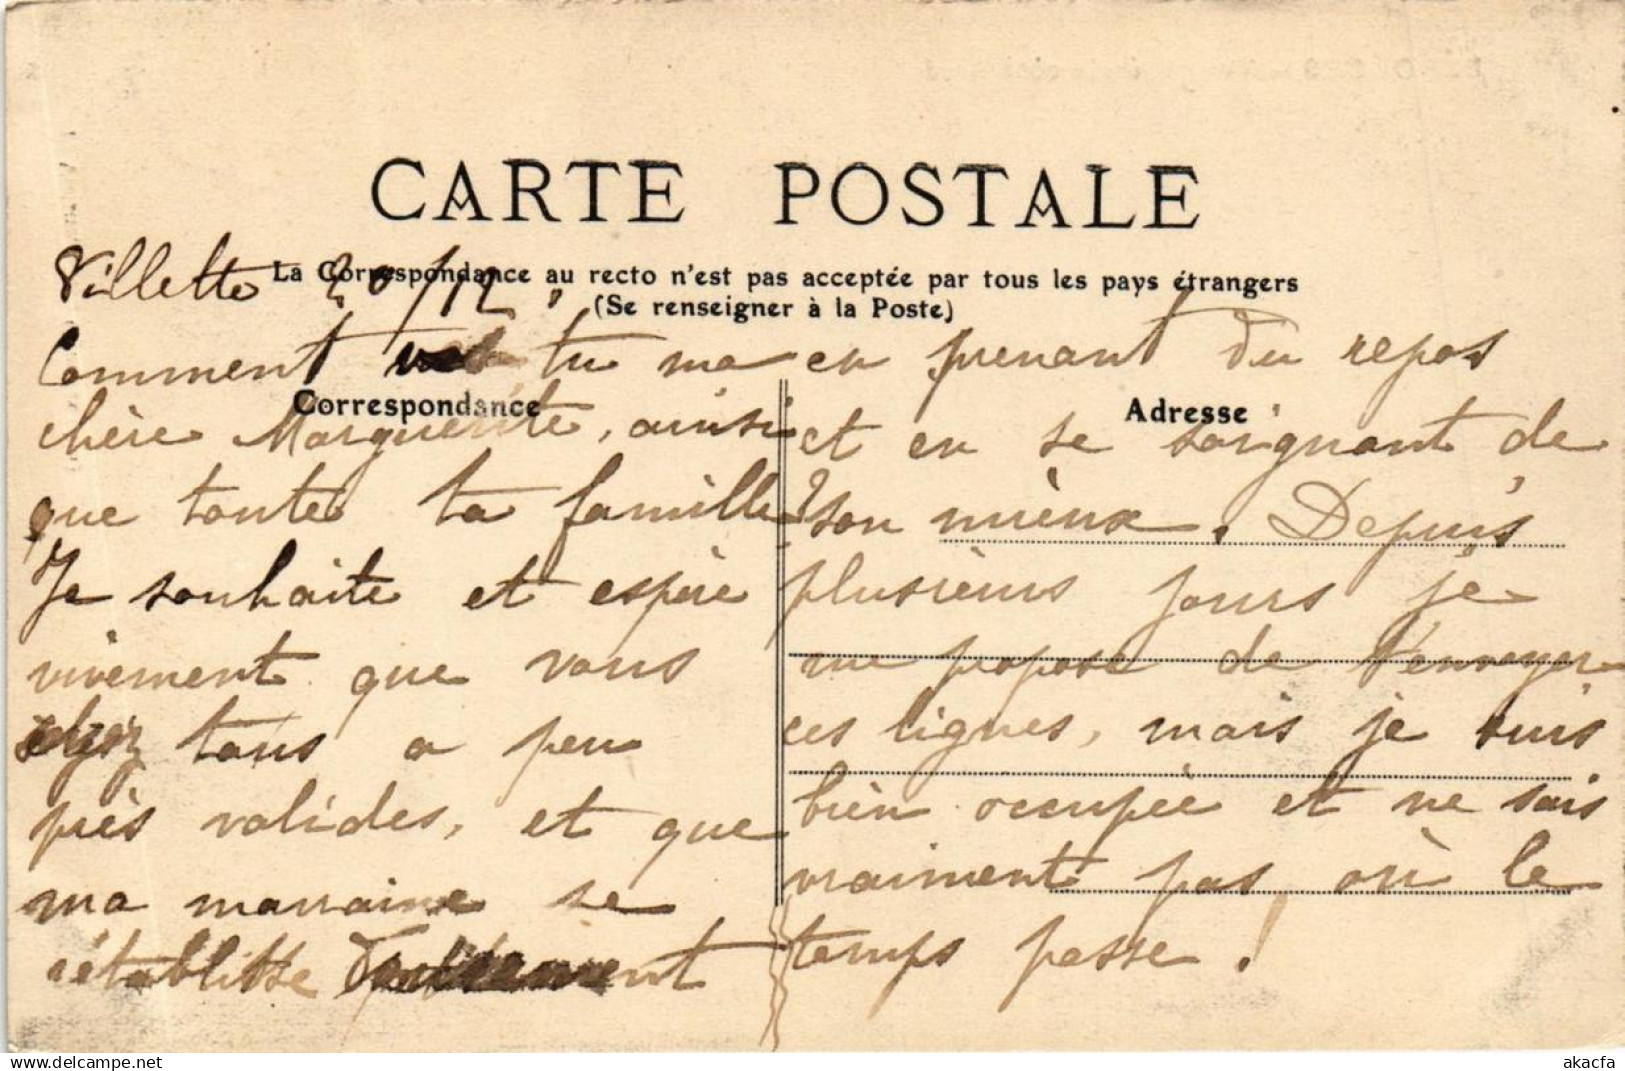 CARTE POSTALE
La Correspondance au recto n'est pas acceptée par tous les pays étrangers
(Se renseigner à la Poste)
Correspondance
Adresse
Villette 20/12.
Comment vas tu ma
chère Marguerite, ainsi
que toute ta famille?
Je souhaite et espère
vivement que vous
tous a peu
près valides, et que
ma marraine se
rétablisse
en prenant du repos
et en se soignant de
son mieux. Depuis
plusieurs jours je
me propose de t'envoyer
ces lignes, mais je suis
bien occupée et ne sais
vraiment pas où le
temps passe!
akacfa
www.delcampe.net